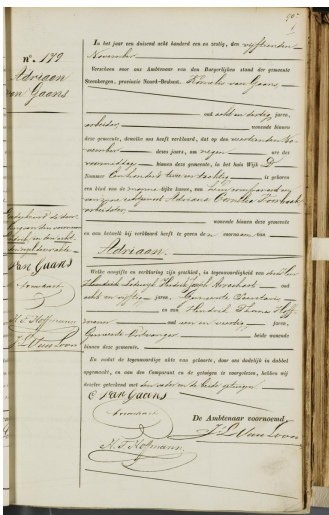 No. 179
Adriaan
van Gaans
In het jaar een duizend acht honderd een en zestig, den vijftienden
November
Verscheen voor ons Ambtenaar van den Burgerlijken stand der gemeente
Steenbergen, provincie Noord-Braband. Cornelis van Gaans,
oud acht en dertig jaren,
arbeider wonende binnen
deze gemeente, dewelke ons heeft verklaard, dat op den veertienden No-
vember dezes jaars, om negen ure des
voormiddags binnen deze gemeente, in het huis Wijk D
Nummer Een honderd twee en tachtig is geboren
een kind van de mannelijke kunne, van
van zijne echtgenoot Adriana Cornelia
arbeidster
wonende binnen deze gemeente
en aan hetwelk hij verklaard heeft te geven den voornaam van
Adriaan.
Welke aangifte en verklaring zijn geschied, in tegenwoordigheid van den Heer
Lodewijk Hendrik Joseph oud
acht en vijftig jaren, Gemeente Secretaris
en van Hendrik Hoff-
mann oud een en veertig jaren,
Gemeente Ontvanger beide wonende
binnen deze gemeente.
En zoodat de tegenwoordige akte van geboorte, door ons dadelijk in dubbel
opgemaakt, en aan den Comparant en de getuigen is voorgelezen, hebben wij
dezelve geteekend met den vader en de beide getuigen.
C Van Gaans
De Ambtenaar voornoemd
J L Van Loon
H. F. Hoffmann
C Van Gaans
H. F. Hoffmann
J L Van Loon